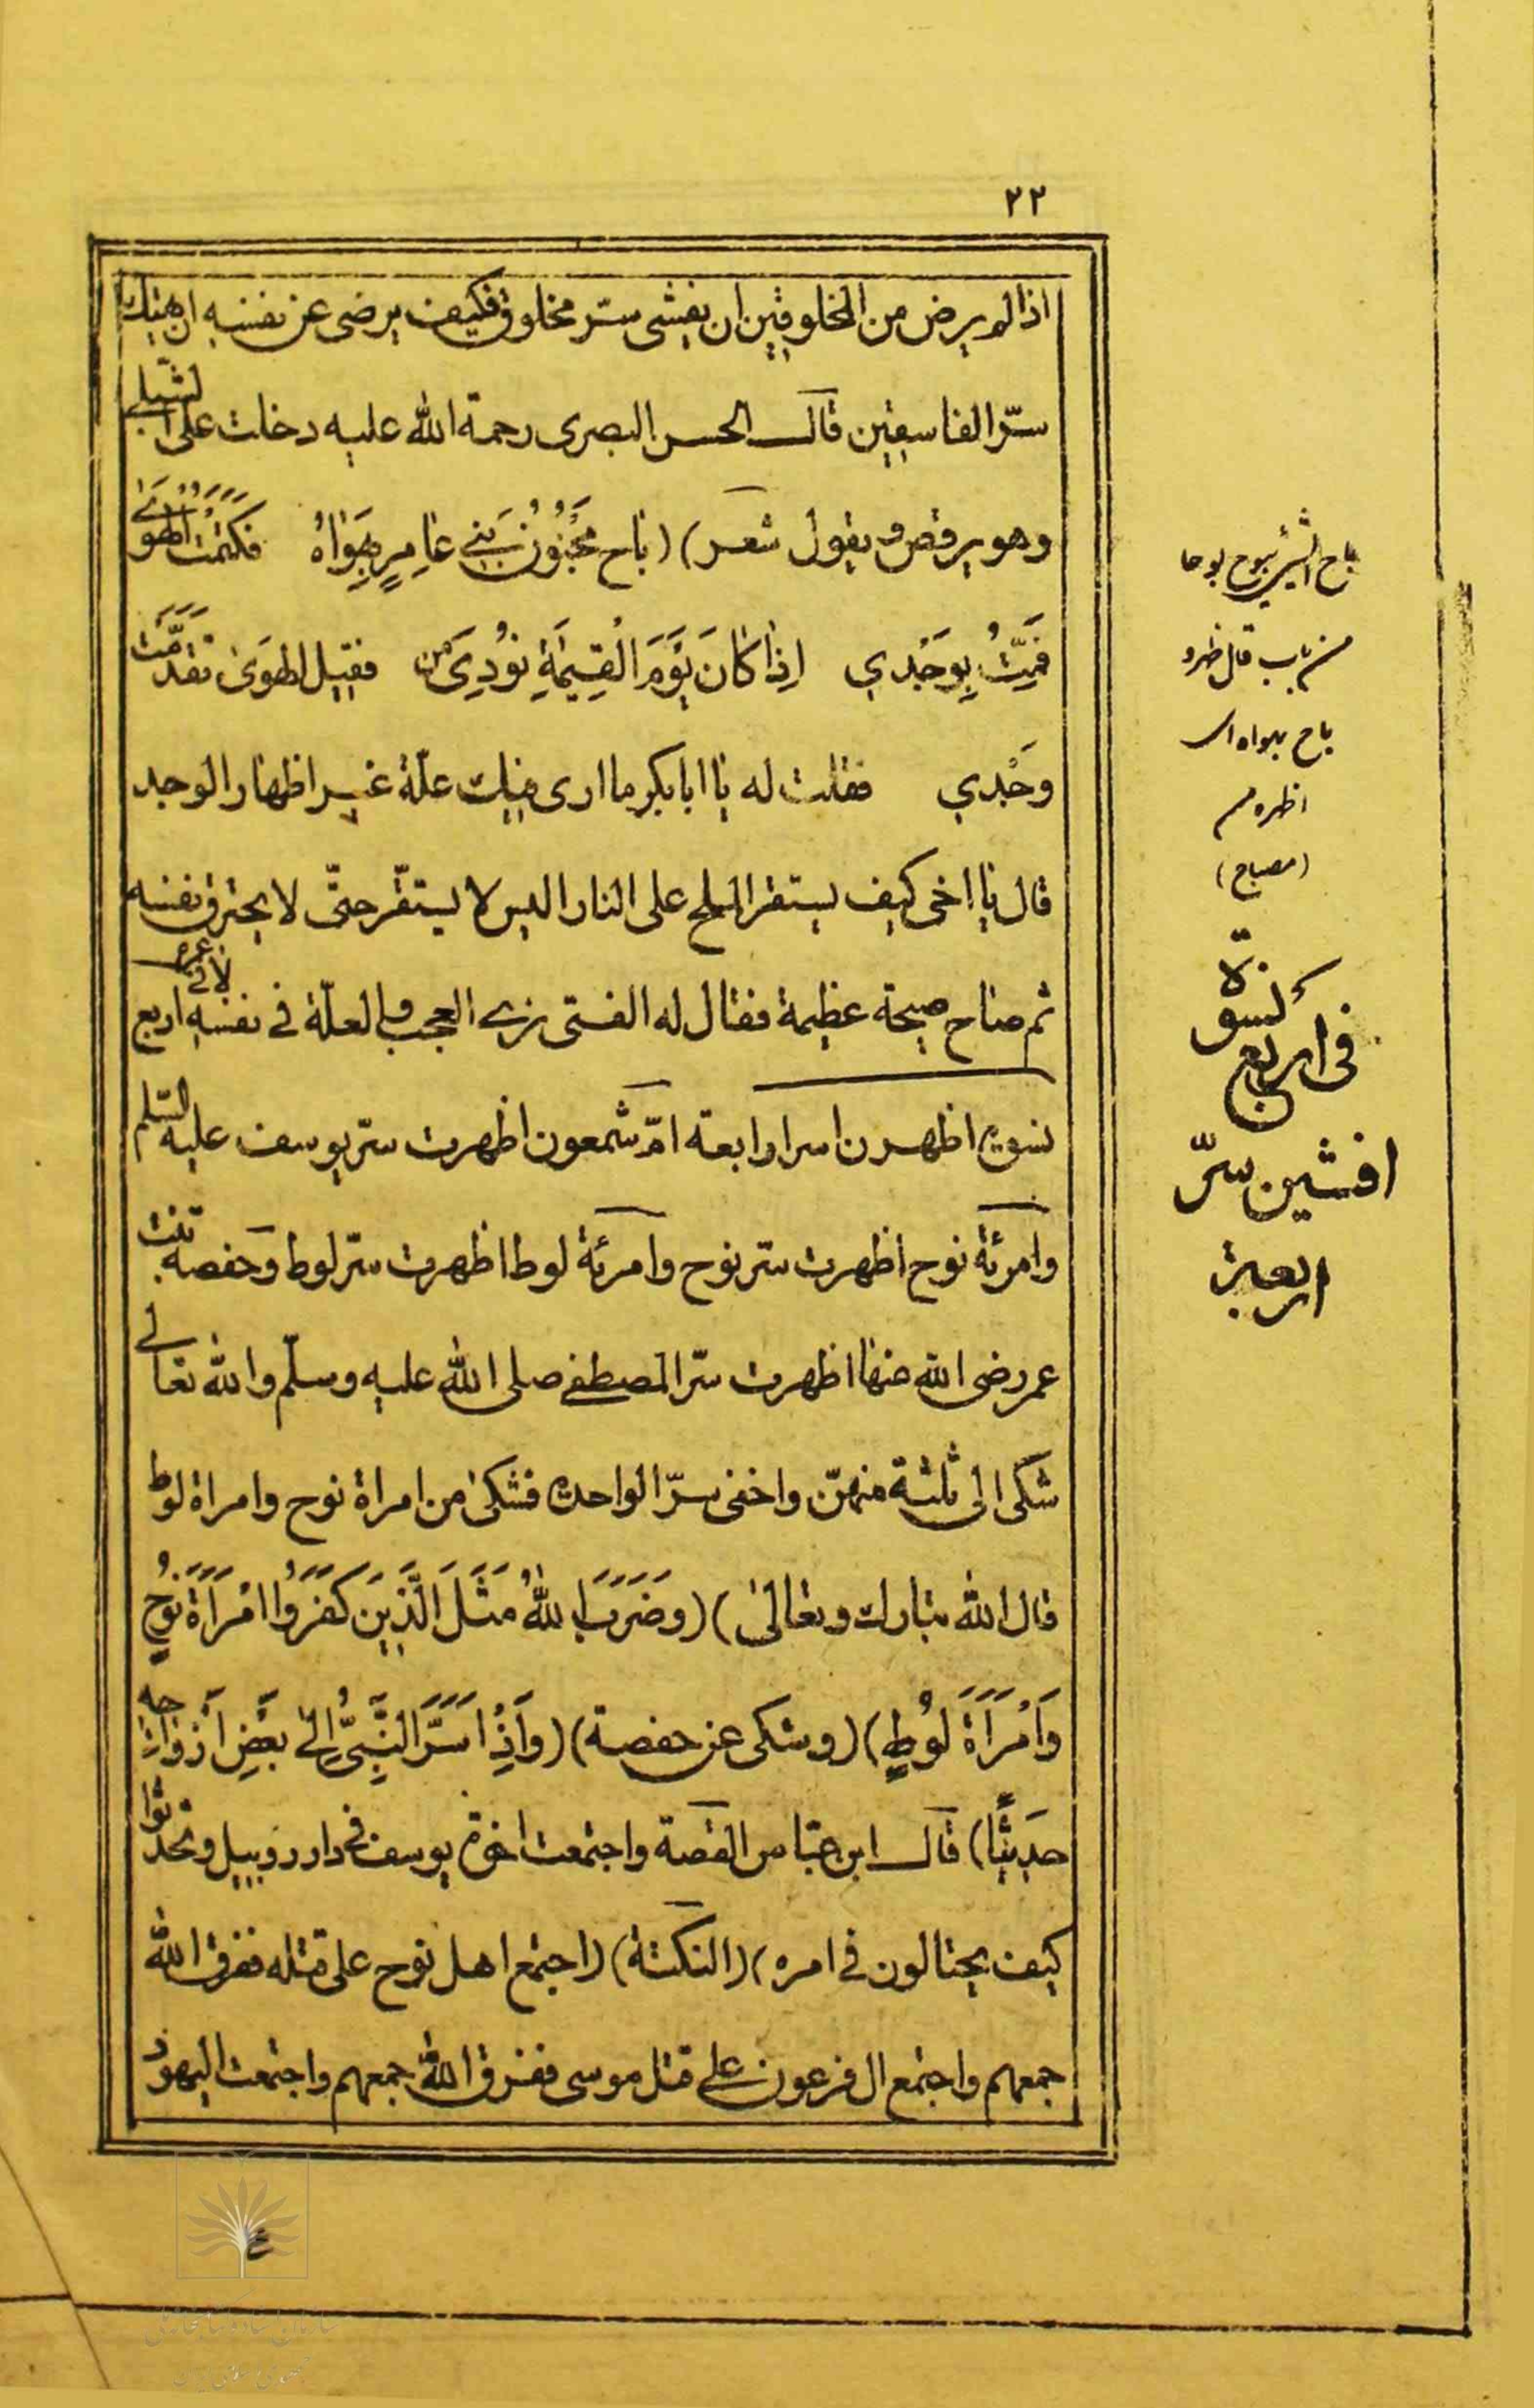 ٢٢
اذا لم يرض من المخلوقين ان يفشى سرّ مخلوق فكيف يرضى عن نفسه ان يهتك
سرّ الفاسقين قال الحسن البصرى رحمة الله عليه دخلت على الشبلى
وهو يرقص و يقول شعر) (باح مَجْنُونُ بَنِي عَامِرٍ بِهَوَاهُ فكَتَمْتُ الهوى
فَمِتُّ بِوَجْدِي اِذَا كَانَ يَوْمَ الْقِيٰمَةِ نُودِىَ من فقتيل الهَوىٰ تقدّمت
وَحْدِي فقلت له يا ابا بكر ما ارى فيك علّة غير اظهار الوجد
قال يا اخى كيف يستقر الملح على النار اليس لا يستقّر حتّى لا يحترق نفسه
ثم صاح صيحة عظيمة فقال له الفتى العجب والعلّة فى نفسه اربع
نسوة اظهرن اسرار اربعة امّ شمعون اظهرت سرّ يوسف عليه السّلم
وامرئة نوح اظهرت سرّ نوح وامرئة لوط اظهرت سرّ لوط وحفصه بنت
عمر رضى الله عنها اظهرت سّر المصطفى صلى الله عليه وسلّم والله تعالى
شكى الى ثلثة منهنّ واخفى سرّ الواحدة فشكىٰ من امراة نوح وامراة لوط
قال الله تبارك وتعالىٰ) (وَضَرَبَ اللهُ مَثَلَ الَّذِينَ كَفَرُوا امْرَاَةَ نُوحٍ
وَامْرَاَةَ لُوطٍ) (وشكى عن حفصة) (وَاِذْ اَسَرَّ النَّبِىُّ اِلىٰ بَعْضِ اَزْوَاجِهِ
حَدِيثًا) قال ابن عبّاس القصة واجتمعت اخوة يوسف فى دار روبيل وتحدثوا
كيف يحتالون فى امره) (النكتة) (اجتمع اهل نوح على قتله ففرق الله
جمعهم واجتمع ال فرعون على قتل موسى ففرق الله جمعهم واجتمعت اليهود
باح الشئ يبوح بوحا
من باب قال ظهر و
باح بهواه اى
اظهره م
(مصباح)
نسوة
فى اربع
افشين سرّ
اربعة